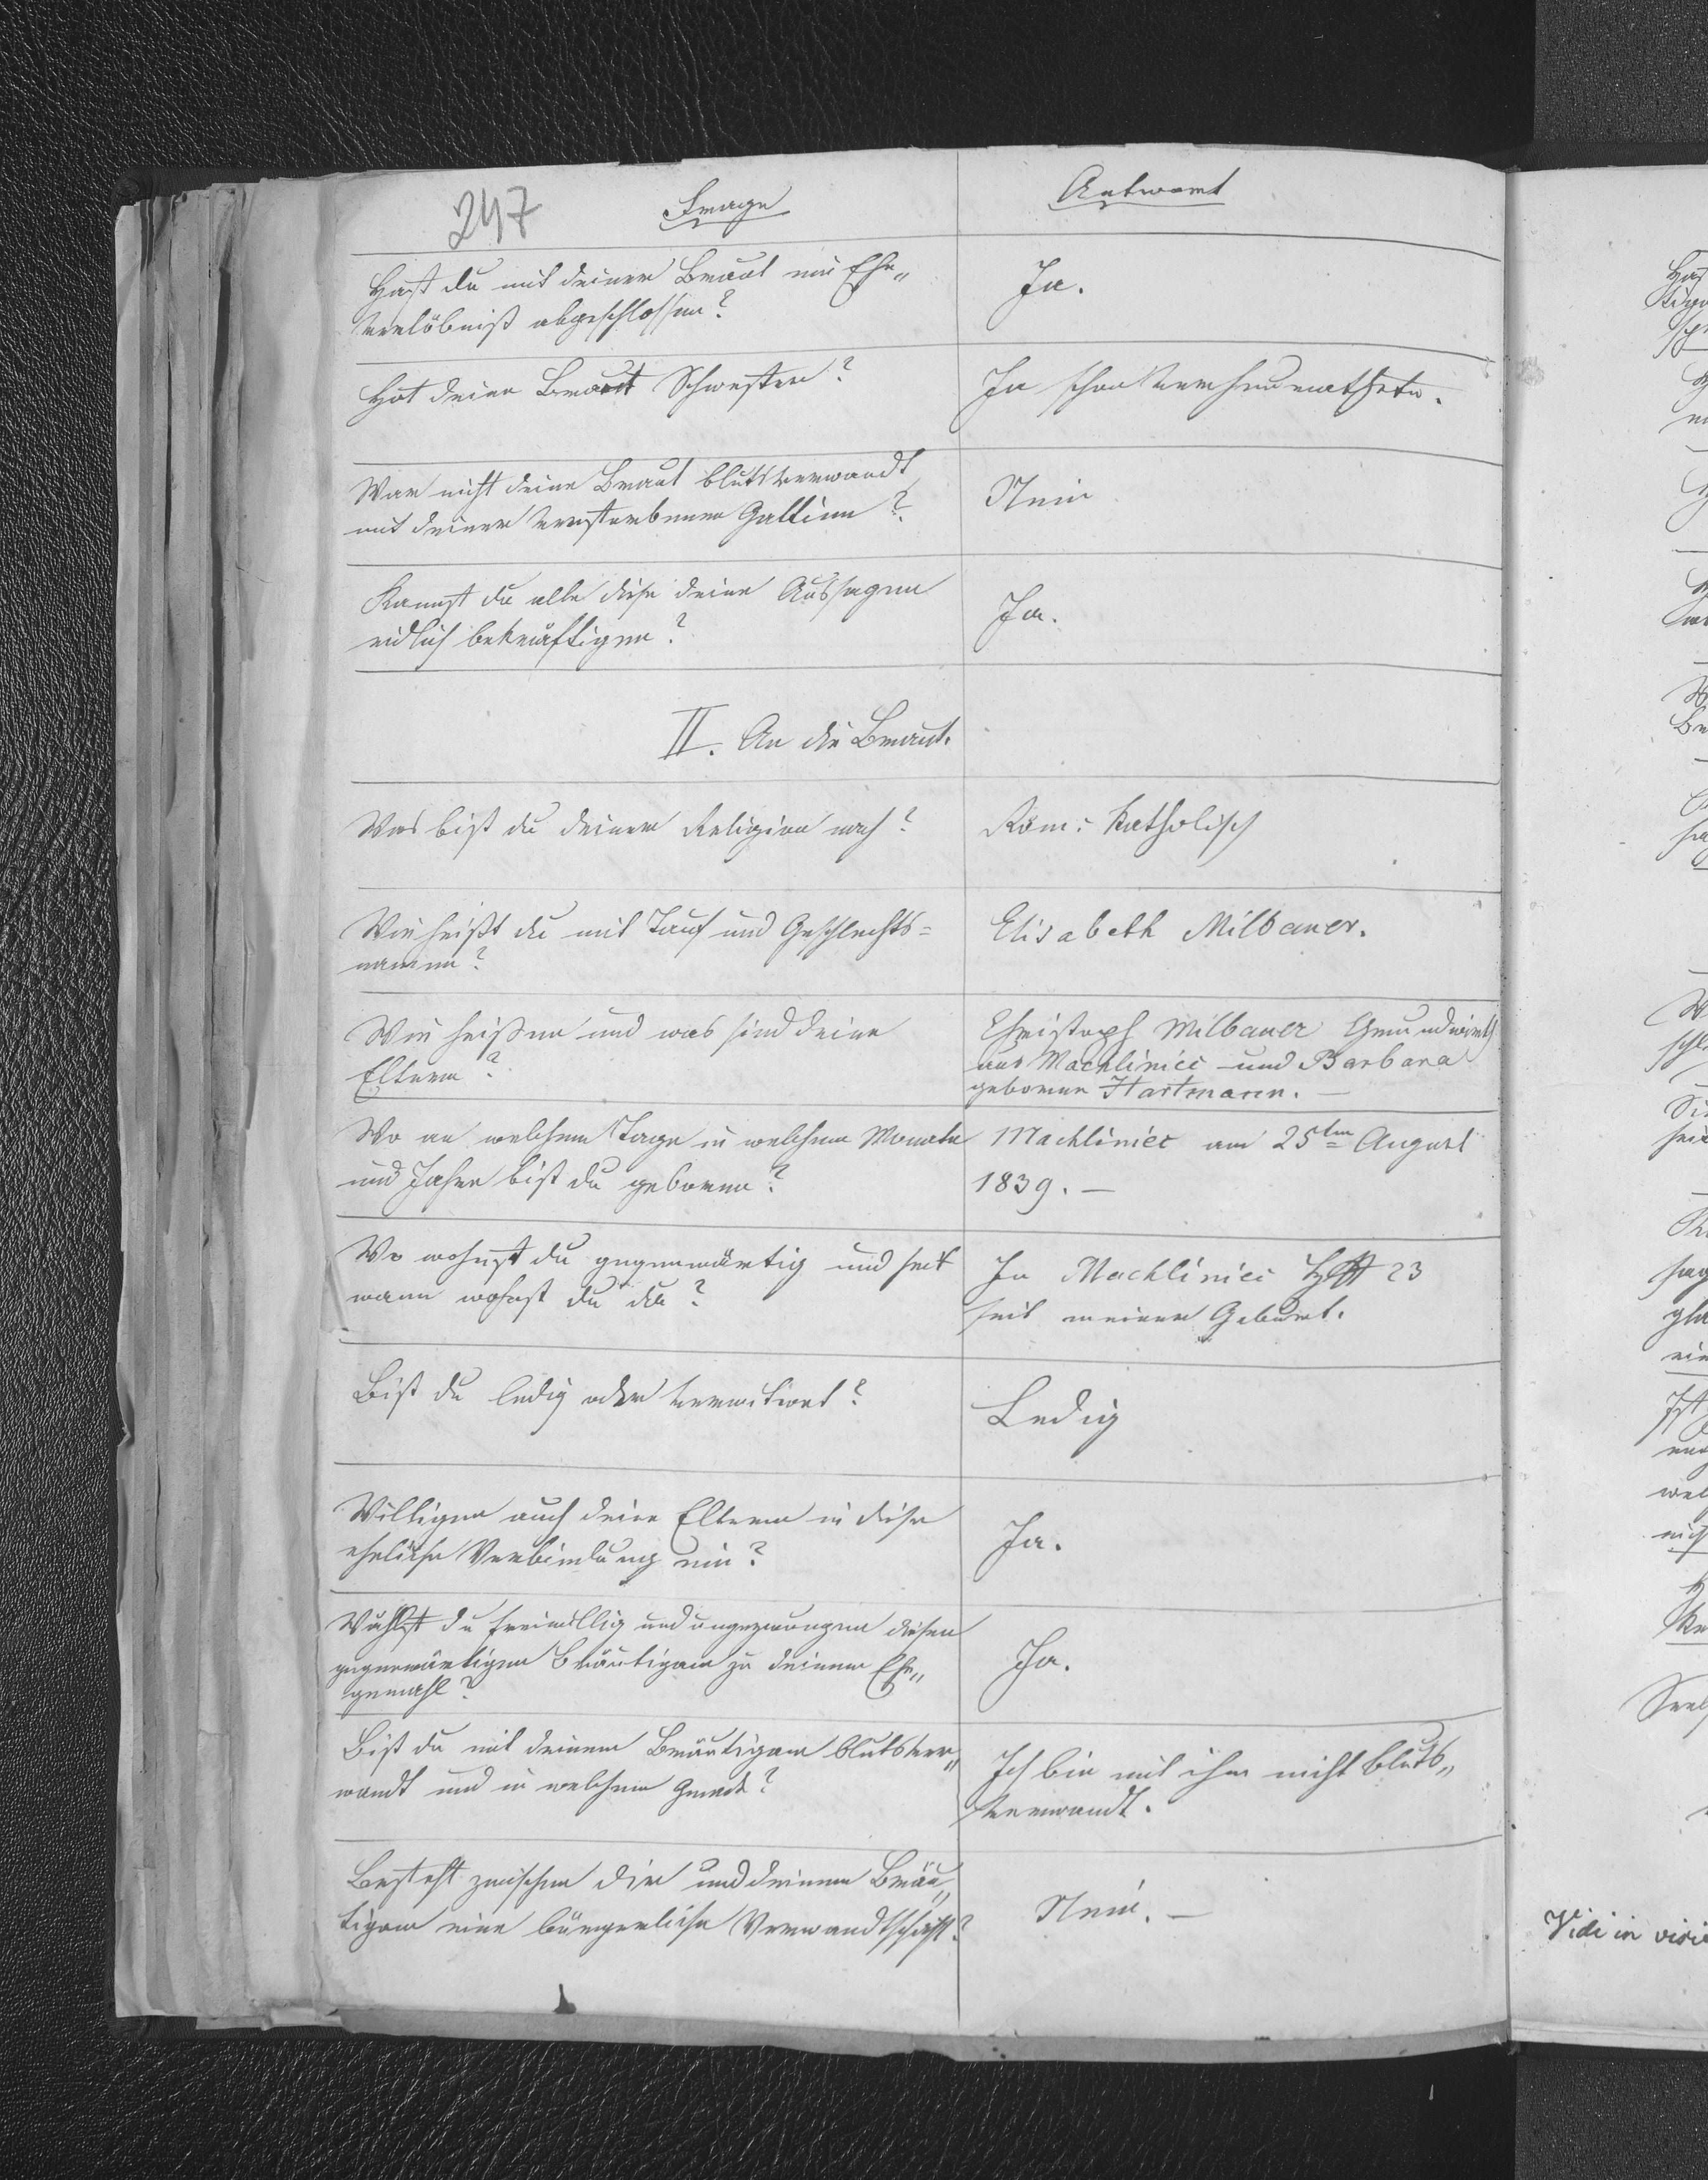 247
Frage
Antwort
Hast du mit deiner Braut ein Ehe„
verlöbniß abgeschlossen?
Ja.
Hat deine Braut Schwestern?
Ja schon verheurathete.
War nicht deine Braut blutsverwandt
mit deiner verstorbenen Gattinn?
Nein
Kannst du alle diese deine Aussagen
eidlich bekräftigen?
Ja.
II. An die Braut.
Was bist du deiner Religion nach?
Röm: Katholisch
Wie heißt du mit Tauf und Geschlechts=
namen?
Elisabeth Milbauer.
Wie heißen und was sind deine
Eltern?
Christoph Milbauer Grundwirth
aus Machliniec und Barbara
geborene Hartmann. —
Wo an welchem Tage in welchem Monate
und Jahre bist du geboren?
Machliniec am 25ten August
1839. —
Wo wohnst du gegenwärtig und seit
wann wohnst du da?
In Machliniec 23
seit meiner Geburt.
Bist du ledig oder verwitwet?
Ledig
Willigen auch deine Eltern in diese
eheliche Verbindung ein?
Ja.
Wählst du freiwillig und ungezwungen diesen
gegenwärtigen Bräutigam zu deinem Ehe„
gemahl?
Ja.
Bist du mit deinem Bräutigam blutsver„
wandt und in welchem Grade?
Ich bin mit ihm nicht bluts„
verwandt.
Besteht zwischen dir und deinem Bräu„
tigam eine bürgerliche Verwandtschaft?
Nein. —
Vidi in